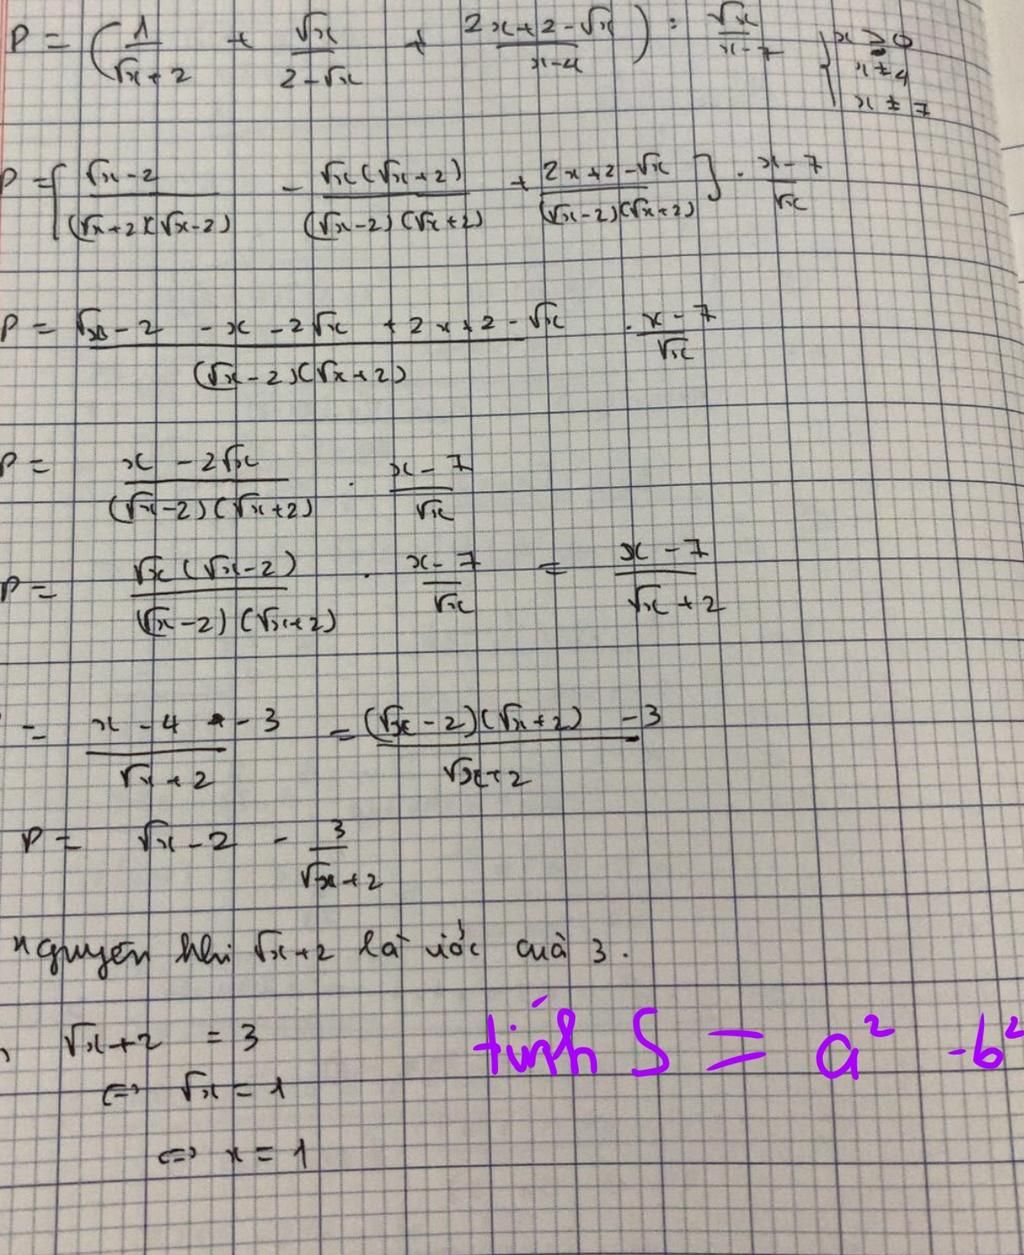 P = (1/(√x+2) + √x/(2-√x) + (2x+2-√x)/(x-4)) : √x/(x-7) { x ≥ 0
x ≠ 4
x ≠ 7
P = [(√x-2)/((√x+2)(√x-2)) - √x(√x+2)/((√x-2)(√x+2)) + (2x+2-√x)/((√x-2)(√x+2))] . (x-7)/√x
P = (√x-2 -x -2√x +2x+2-√x)/((√x-2)(√x+2)) . (x-7)/√x
P = (x -2√x)/((√x-2)(√x+2)) . (x-7)/√x
P = √x(√x-2)/((√x-2)(√x+2)) . (x-7)/√x = (x-7)/(√x+2)
= (x-4 -3)/(√x+2) = ((√x-2)(√x+2) -3)/(√x+2)
P = √x-2 - 3/(√x+2)
nguyên khi √x+2 là ước của 3.
√x+2 = 3
⇔ √x = 1
⇔ x = 1
tính S = a² -b²